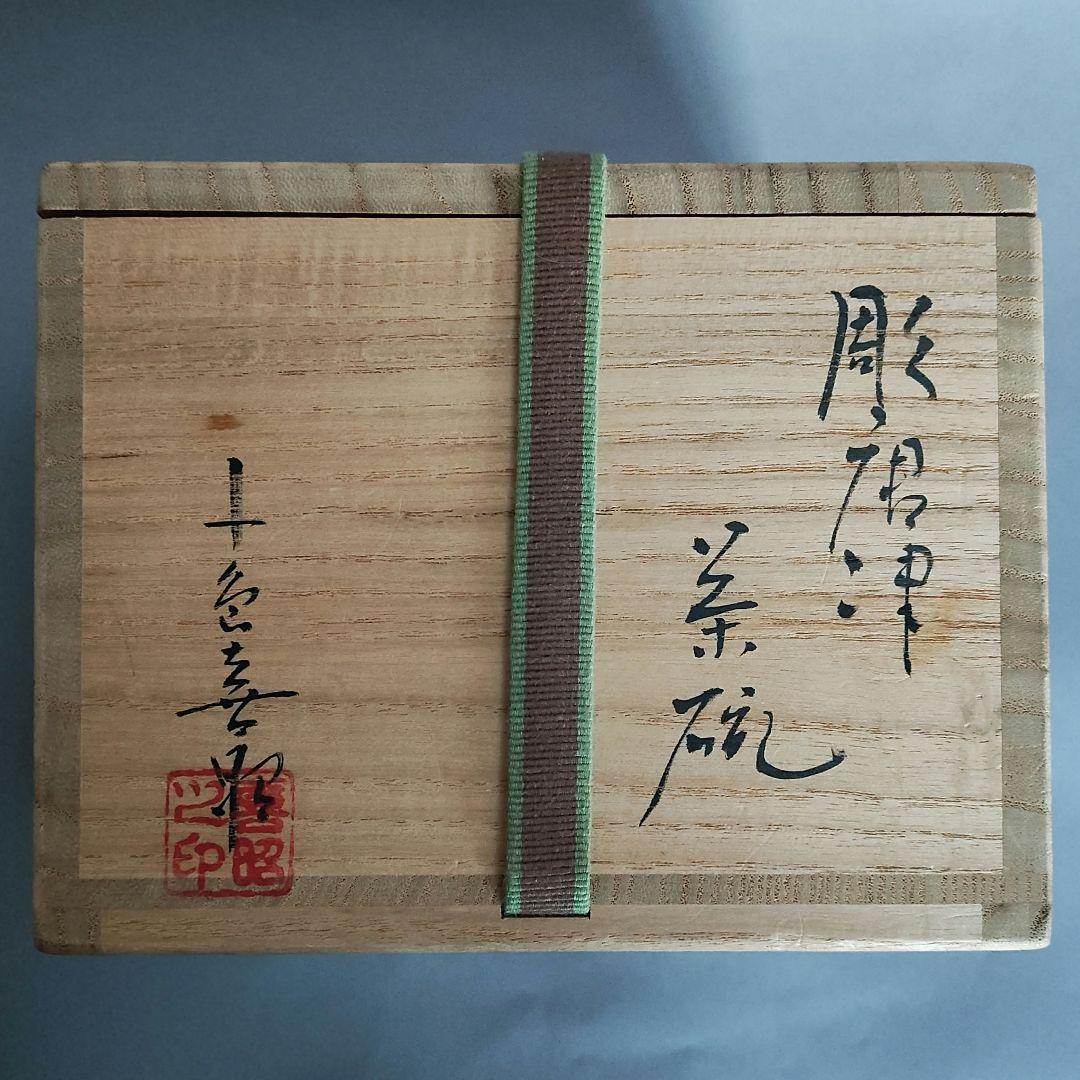 彫唐津
茶碗
十喜昭
喜昭之印